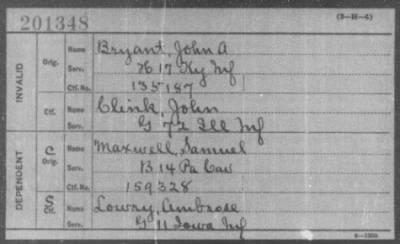 201348
(3-H-G)
INVALID
Orig. Name Bryant, John A
Serv. H 17 Ky Inf
Ctf. No. 135187
Ctf. Name Clink, John
Serv. G 72 Ill Inf
DEPENDENT
C
Orig. Name Maxwell, Samuel
Serv. B 14 Pa Cav
Ctf. No. 159328
S
Ctf. Name Lowry, Ambrose
Serv. G 11 Iowa Inf